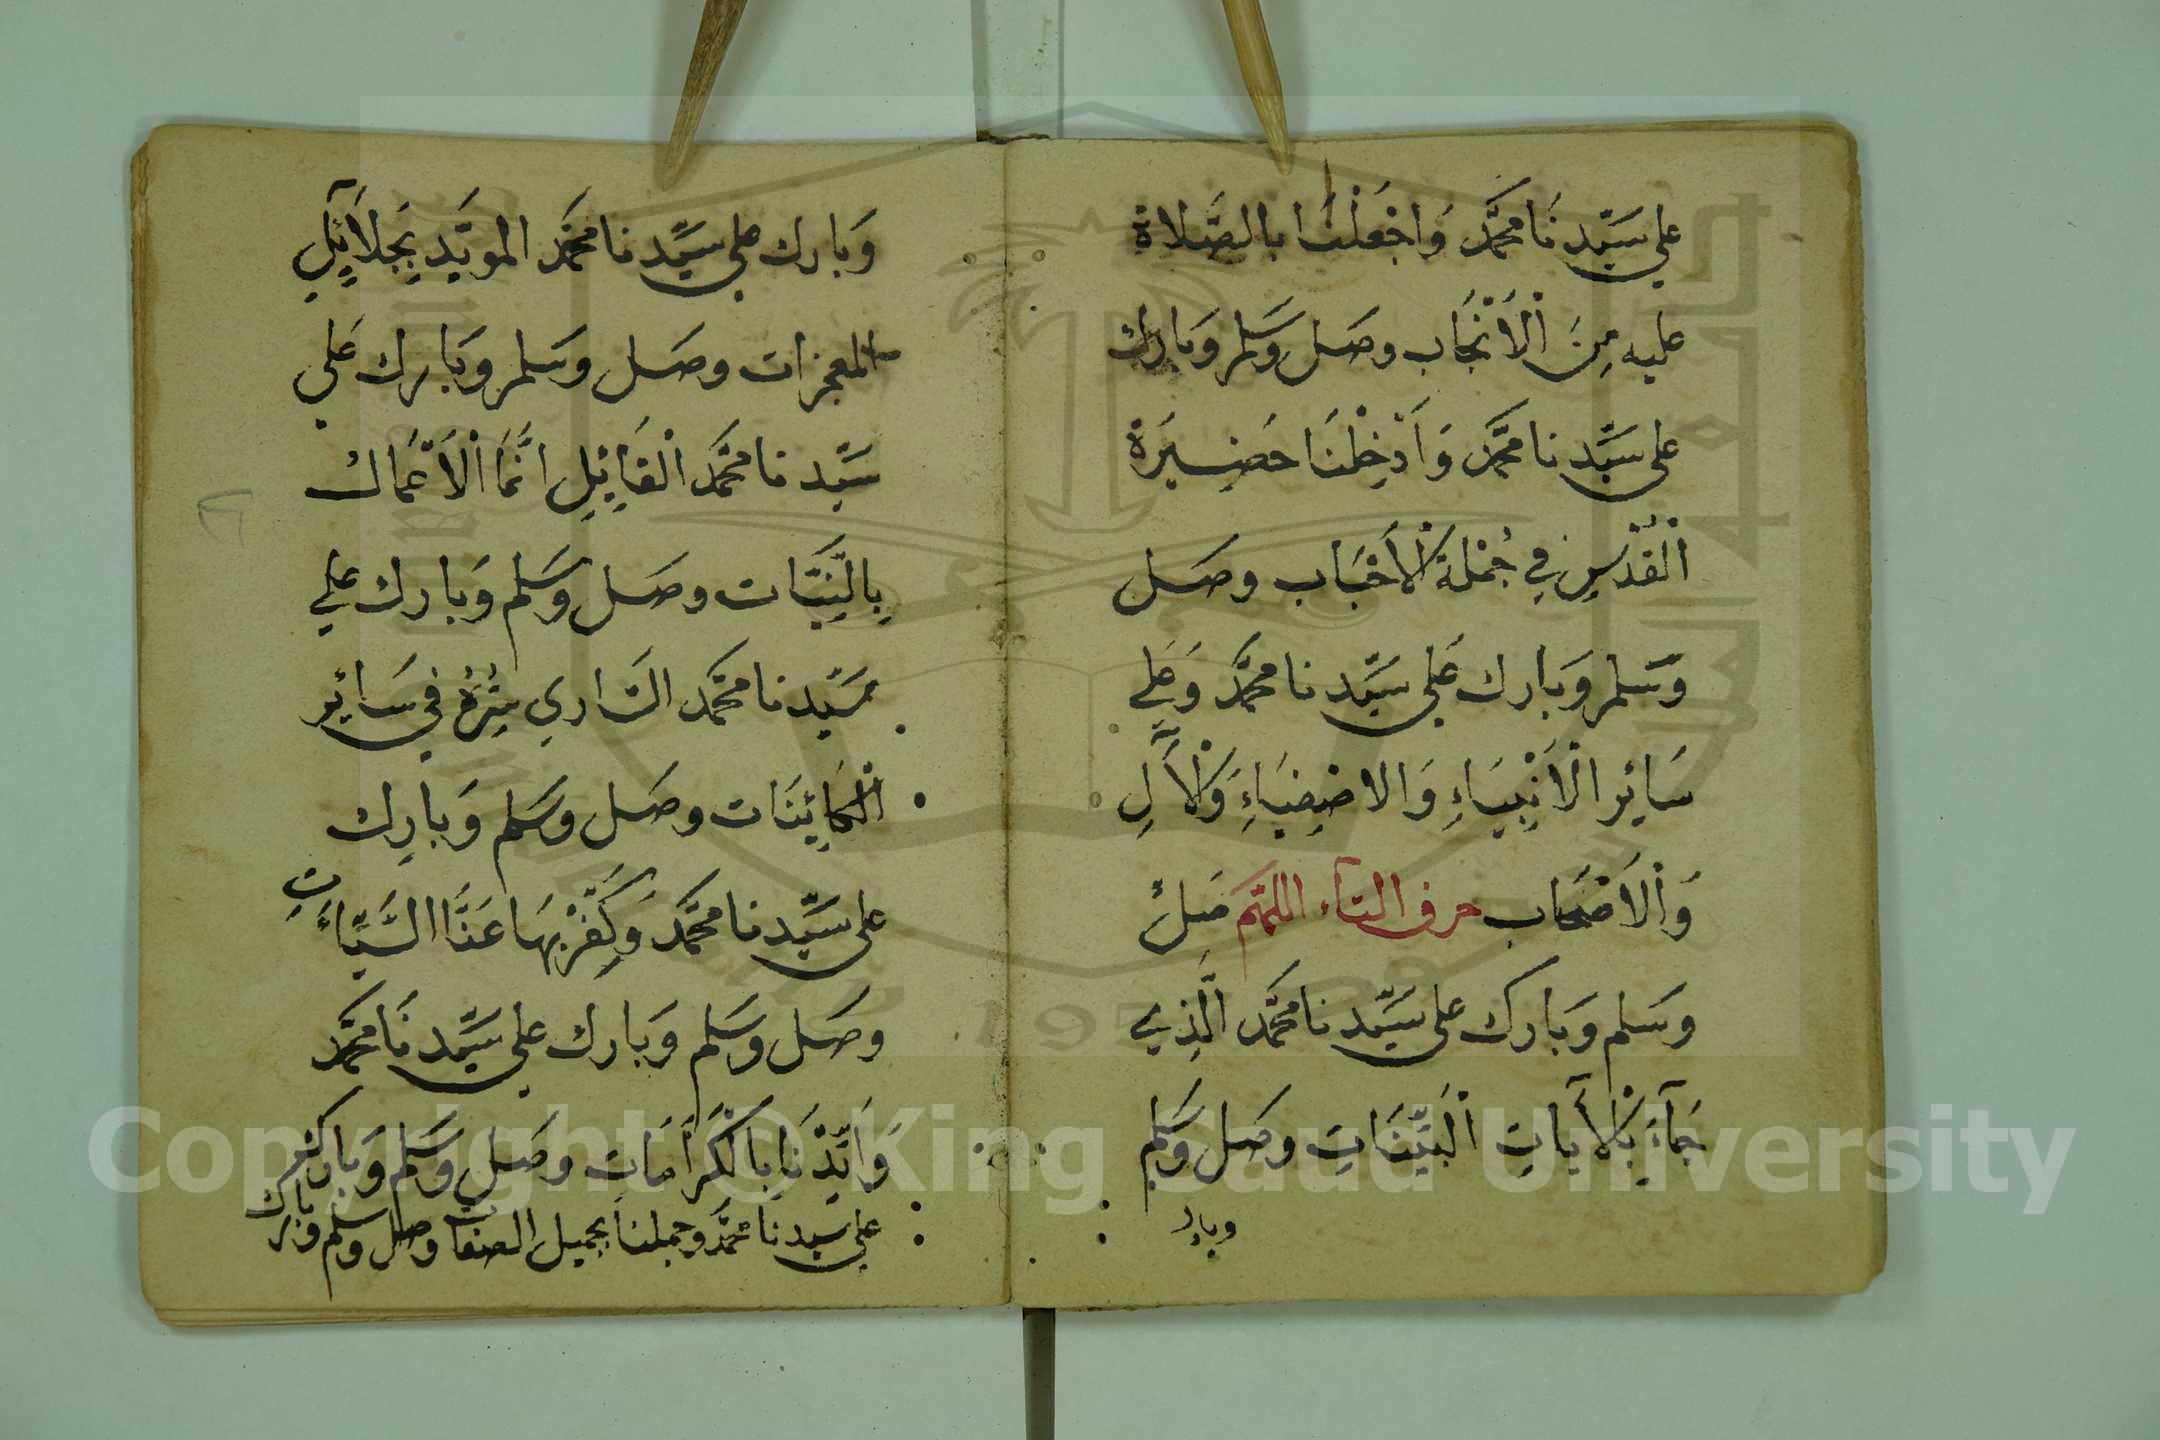 علي سَيّدِ نَا محمَّد وَاجْعَلْنَا بالصَّلاة
عليه مِنَ الْاَنْجَاب وصَل وَسَلم وَبَارك
علي سَيِّدِ نا محمَّد وَاَدْخِلْنَا حَضِيرَة
الْقُدْسِ فِي جُمْلَة الْاَحْبَاب وصَل
وَسَلم وَبارك عَلي سَيِّد نا محمَّد وَعَلِي
سَائِر الْاَنْبِيَاءِ وَالاصْفِيَاءِ وَالْآلِ
وَالْاَصْحَاب حرف التآء اللهم صَلِّ
وَسَلم وَبَارك علي سَيِّد نا محمَّد الَّذِي
جَآءَ بِالْآيَاتِ الْبَيِّنَاتِ وصَل وَسَلم
وبار
وَبارك علي سَيِّد نا محمَّد المويَّدِ بِجَلَآئِلِ
المعجزات وصَل وسَلم وبَارك عَلي
سَيِّد نا محمَّد الْقَائِلِ انَّمَا الْاَعْمَال
بِالنِّيَّات وصَل وَسَلم وَبارك علي
سَيِّد نا محمَّد السَّاري سِرُّهُ في سَائِر
الْكَائِنَات وصَل وسَلم وَبارِك
علي سَيِّد نا محمَّد وَكَفِّرْ بِهَا عَنَّا السَّيِّاَتِ
وصَل وَسَلم وَبَارك علي سَيِّد نَا محمَّد
وَاَيِّدْنَا بِالْكَرَامَاتِ وصَل وَسَلم وَبَارك
علي سيد نا محمَّد وجملنا بجميل الصفات وصل وسلم وبارك
Copyright © King Saud University
1957